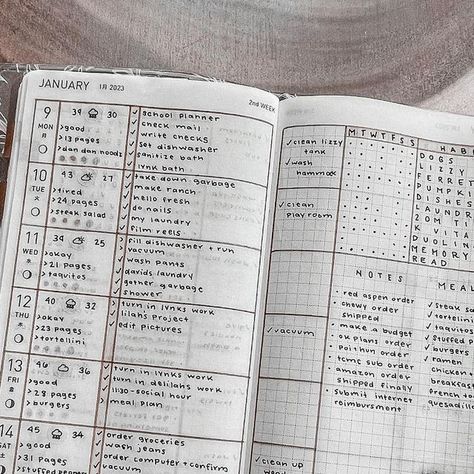 JANUARY 1月 2023
2nd WEEK
9 39 30
MON >good
月 >13 pages
>dan dan noodz
✓ school planner
✓ check mail
✓ write checks
✓ set dishwasher
✓ sanitize bath
✓ lynk bath
10 43 27
TUE >tired
火 >24 pages
>steak salad
✓ take down garbage
✓ make ranch
✓ hello fresh
✓ do nails
✓ my laundry
✓ film reels
11 39 25
WED >okay
水 >21 pages
>taquitos
✓ fill dishwasher + run
✓ vacuum
✓ wash pants
✓ davids laundry
✓ gather garbage
✓ shower
12 40 37
THU >okay
木 >23 pages
>tortellini
>turn in lynks work
✓ lilahs project
>edit pictures
13 46 32
FRI >good
金 >28 pages
>burgers
✓ turn in lynks work
✓ turn in delilahs work
✓ 11:30-social hour
>meal plan
14 50 34
SAT >good
土 >31 pages
>stuffed peppers
✓ order groceries
✓ wash jeans
✓ order computer + confirm
✓ vacuum
✓ clean lizzy
tank
✓ wash
hammock
✓ clean
playroom
✓ vacuum
✓ clean up
M T W T F S S HAB
DOGS
LIZZY
FERRE
PUMPKI
DISHES
LAUNDR
20M TI
K VITA
DUOLIN
MEMORY
READ
NOTES
• red aspen order
• chewy order
shipped
• make a budget
• ok plans order
• poithun order
• tcmc sub order
• amazon order
shipped finally
• Submit internet
reimbursment
MEAL
✓ steak sa
✓ tortellini
✓ taquitos
✓ stuffed
✓ burgers
✓ ramen
chicken
breakfast
french to
quesadilla